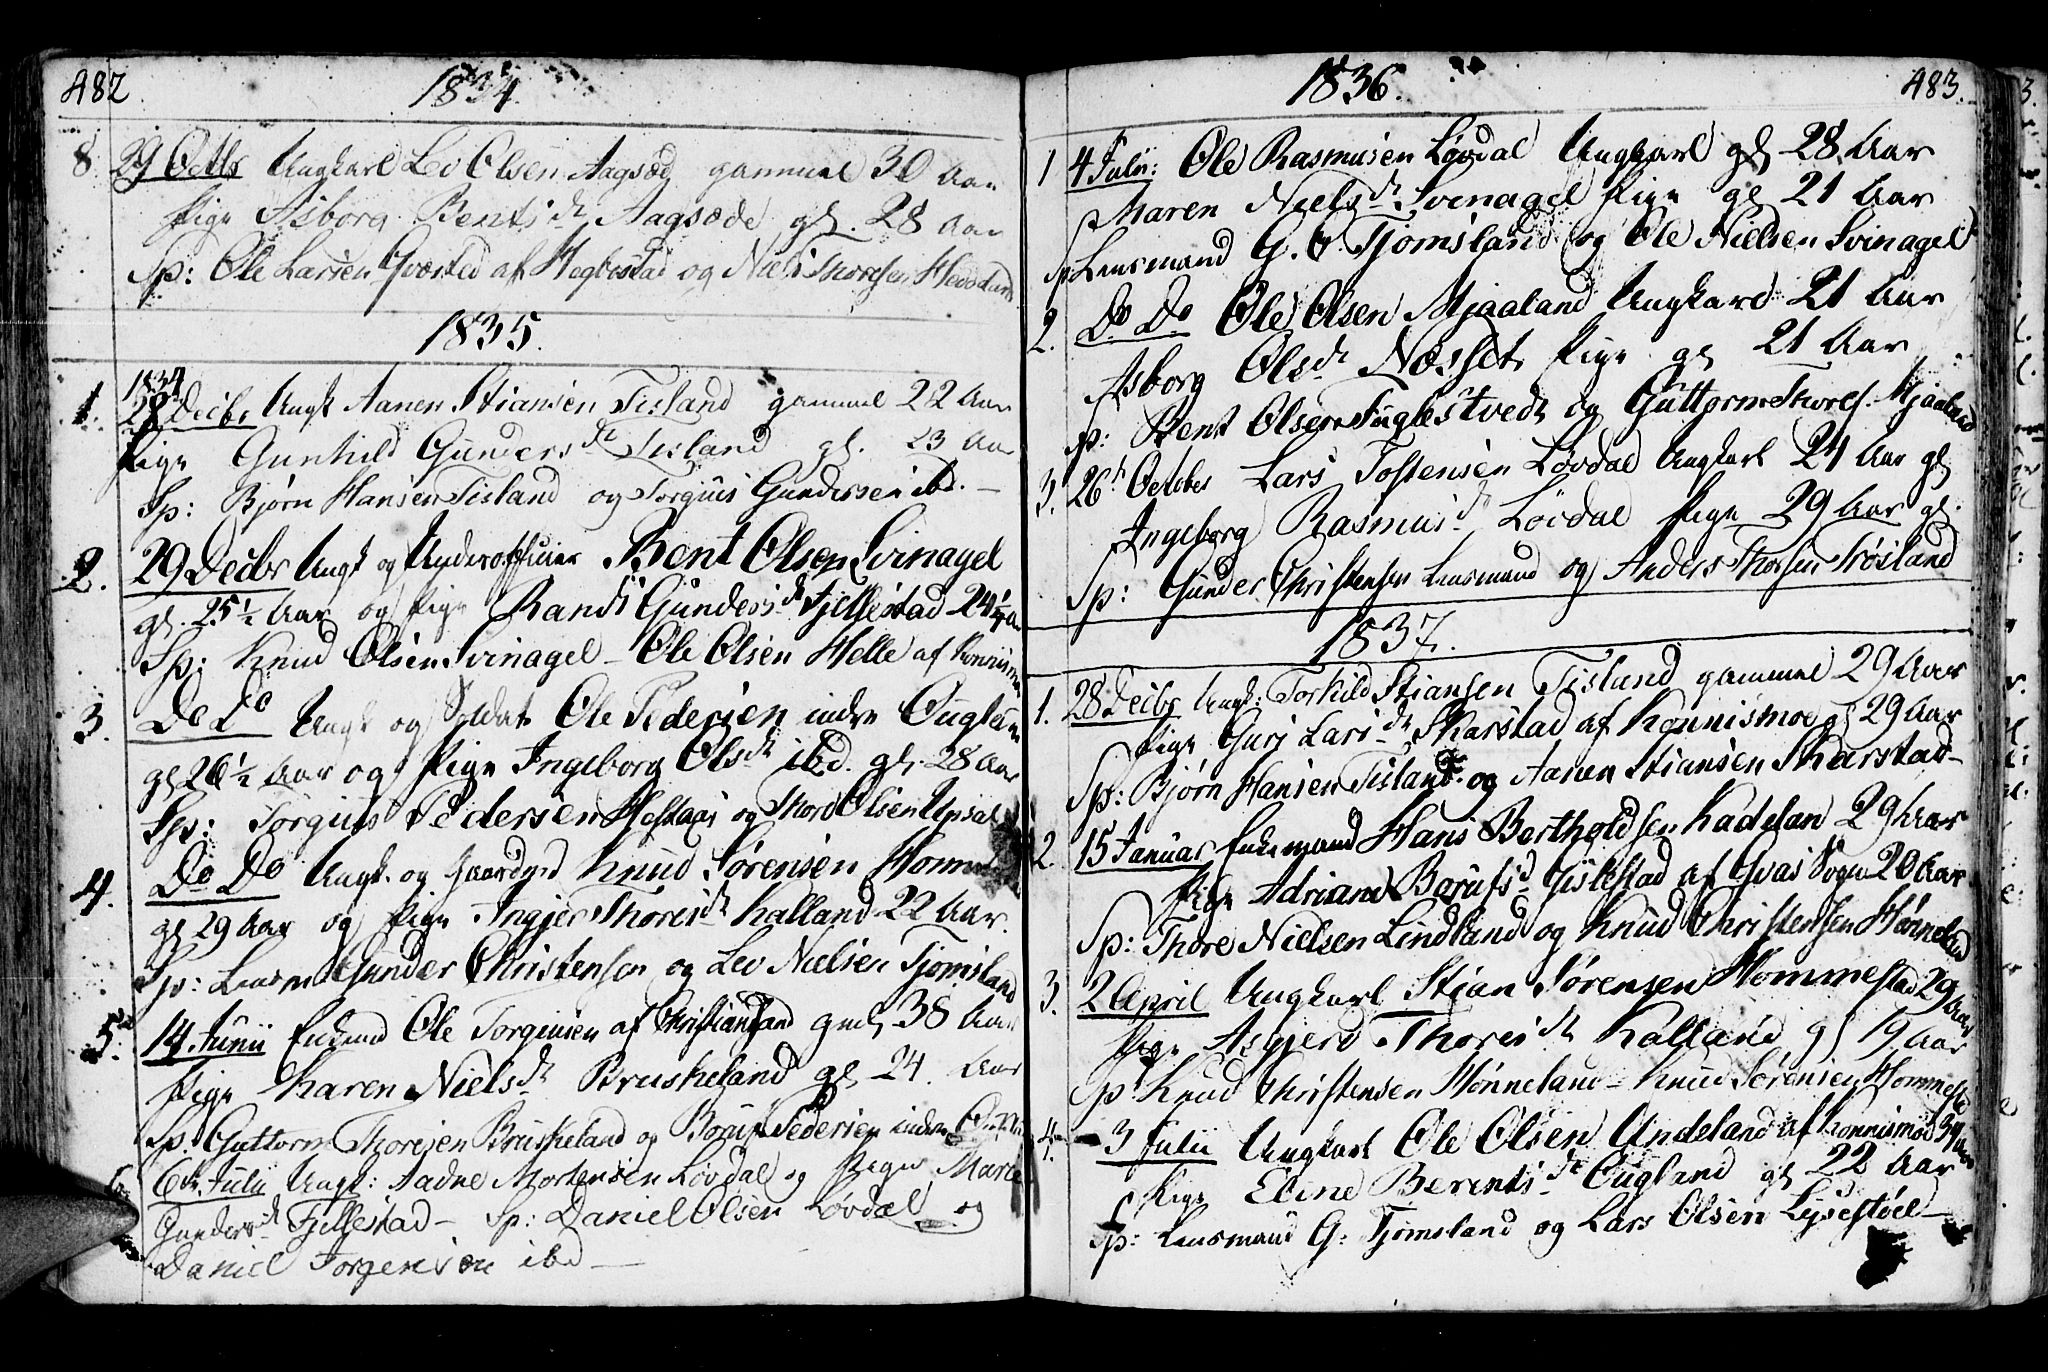 482
1834.
8 29 Octbr Ungkarl Lev Olsen Aagsæd gammel 30 Aar
Pige Asborg Bentsdr Aagsæde gl. 28 Aar
Sp: Ole Larsen Qværsted af Hegbostad og Niels Thoresen
1835.
1834
1. 28 Decbr Ungk Aanen Stiansen Tisland gammel 22 Aar
Pige Gunhild Gundersdr Tisland gl. 23 Aar
Sp: Bjørn Hansen Tisland og Torgius Gundersen ibd. —
2. 29 Decbr Ungk og Underofficier Bent Olsen Svinagel
gl. 25½ Aar og Pige Randi Gundersdr Fjellestad 24½ Aar
Sp: Knud Olsen Svinagel – Ole Olsen Helle af Konnismoe
3. Do Do Ungk og Soldat Ole Pedersen indre Ougland
gl 26½ Aar og Pige Ingeborg Olsdr ibd. gl. 28 Aar
Sp: Torgius Pedersen Høstaas og Thore Olsen Upsal
4. Do Do Ungk. og Gaardmd Knud Sørensen
gl 29 Aar og Pige Angjer Thoresdr Kalland 22 Aar.
Sp: Lensm Gunder Christensen og Lev Nielsen Tjomsland
5. 14 Junii Enkemd Ole Torginsen af Christiansand gml 38 Aar
Pige Karen Nielsdr Brusheland gl 24. Aar
Sp. Guttorm Thoresen Brusheland og Boruf Pedersen indre
6. 6te Julii Ungk: Aadne Mortensen Løvdal og Pige Maren
Gundersdr Fjellestad – Sp: Daniel Olsen Løvdal og
Daniel Torgersen ibd —
1836.
483.
1 4 Julii: Ole Rasmusen Løvdal Ungkarl gl 28 Aar
Maren Nielsdr Svinagel Pige gl 21 Aar
Sp Lensmand G. C. Tjomsland og Ole Nielsen Svinagel
2. Do Do Ole Olsen Mjaaland Ungkarl 21 Aar
Asborg Olsdr Næsset Pige gl 21 Aar
Sp: Bent Olsen Fuglestvedt og Guttorm Thores. Mjaaland
3. 26de October Lars Tostensen Løvdal Ungkarl 24 Aar gl
Ingeborg Rasmusd. Løvdal Pige 29 Aar gl.
Sp: Gunder Christensen Lensmand og Anders Thorsen Trøsland
1837.
1. 28 Decbr Ungk: Torkild Stiansen Tisland gammel 29 Aar
Pige Guri Larsdr Skarstad af Konnismoe gl 29 Aar
Sp: Bjørn Hansen Tisland og Aanen Stiansen Skarstad –
2. 15 Januar Enkemand Hans Bertholdsen Kadelan 29 Aar
Pige Adriana Borufsd Gislestad af Qvas Sogn 20 Aar
Sp: Thore Nielsen Lindland og Knud Christensen Hønneland
3. 2 April Ungkarl Stian Sørensen Hommestad 29 Aar
Pige Asgjerd Thoresdr Kalland gl 19 Aar
Sp: Knud Christensen Hønneland – Knud Sørensen Hommestad
4. 3 Julii Ungkarl Ole Olsen Undeland af Konnismoe
Pige Eline Berentsdr Ougland gl 22 Aar
Sp: Lensmand G. Tjomsland og Lars Olsen Lysestøel –